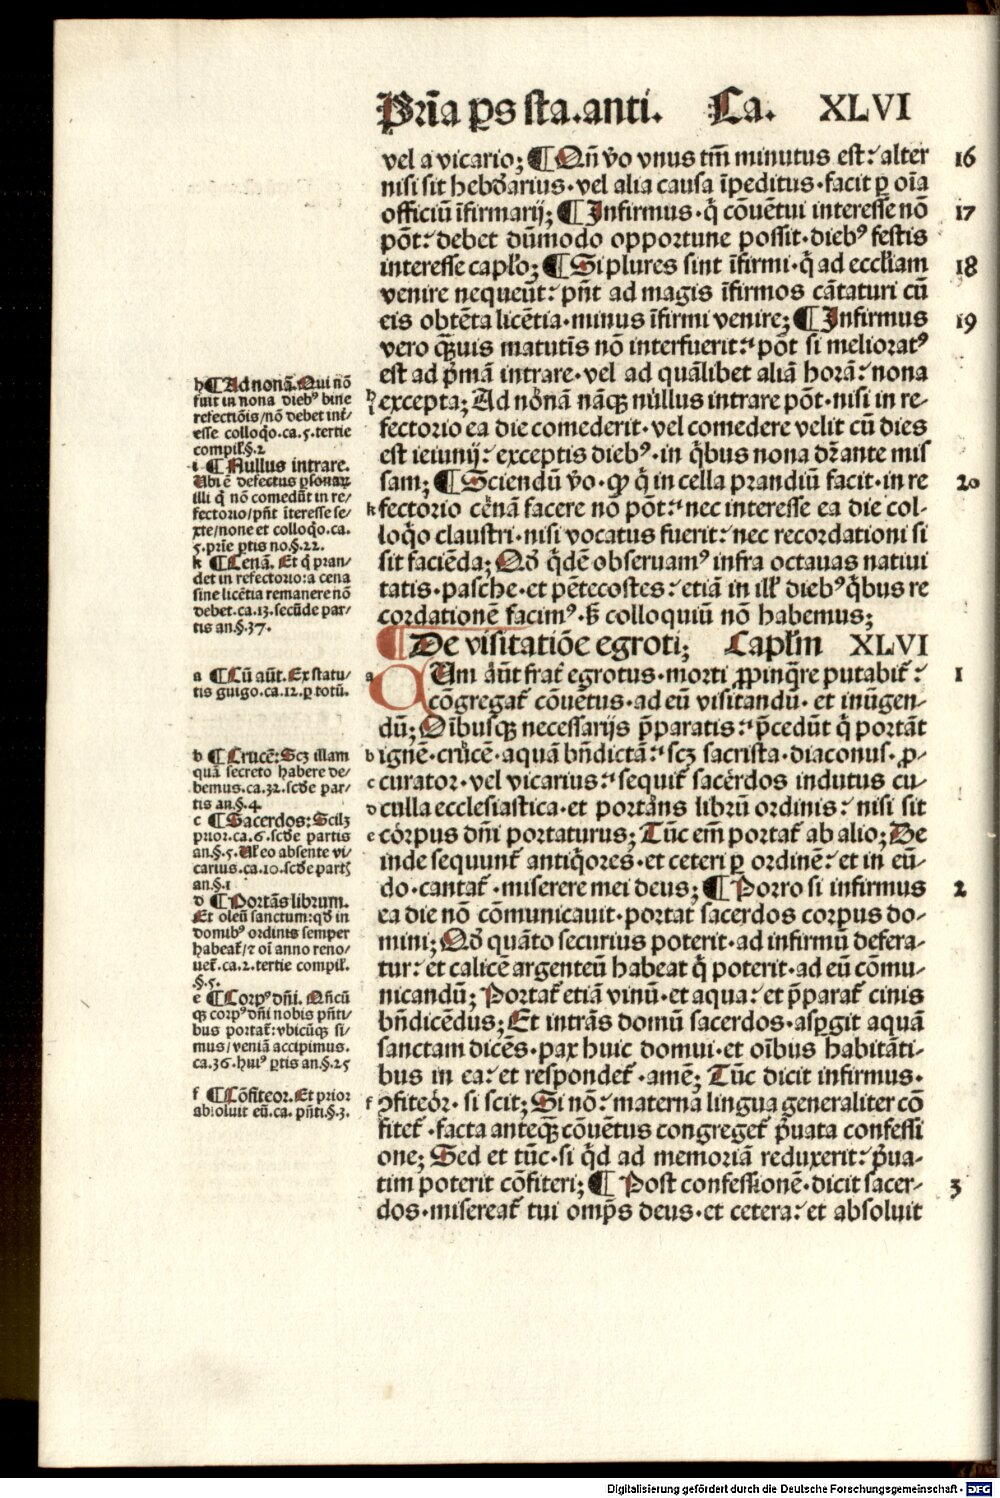 Pria ps sta.anti. Ca. XLVI
vel a vicario; ¶Qn̄ v̊o vnus tm̄ minutus est:׳ alter 16
nisi sit hebd̓arius·vel alia causa īpeditus·facit ꝑ oīa
officiū īfirmarij; ¶Infirmus·q̇ cōuētui interesse nō 17
pōt:׳ debet dūmodo opportune possit·diebꝰ festis
interesse capl̓o; ¶Si plures sint īfirmi·q̇ ad eccl̓iam 18
venire nequeūt:׳ pn̄t ad magis īfirmos cātaturi cū
eis obtēta licētia·minus īfirmi venire; ¶Infirmus 19
vero qꝫuis matutīs nō interfuerit:׳ pōt si melioratꝰ
est ad p̄mā intrare·vel ad quālibet aliā horā:׳ nona
h i excepta; Ad nonā nāqꝫ nullus intrare pōt·nisi in re-
fectorio ea die comederit·vel comedere velit cū dies
est ieiunij:׳ exceptis diebꝰ·in q̇bus nona dr̄ ante mis
sam; ¶Sciendū v̊o·ꝙ q̇ in cella prandiū facit·in re 20
k fectorio cēnā facere nō pōt:׳ nec interesse ea die col-
loq̇o claustri·nisi vocatus fuerit:׳ nec recordationi si
sit faciēda; Qd̓ q̇dē obseruamꝰ infra octauas natiui
tatis·pasche·et pētecostes:׳ etiā in ill̓ diebꝰ q̇bus re
cordationē facimꝰ·s̓ colloquiū nō habemus;
¶De visitatiōe egroti; Capl̓m XLVI
a CUm aūt frat̓ egrotus·morti ꝓpinq̇re putabit̓:׳ 1
cōgregat̓ cōuētus·ad eū visitandū·et inūgen-
dū; Oībusqꝫ necessarijs p̄paratis:׳ p̄cedūt q̇ portāt
b ignē·crucē·aquā bn̄dictā:׳ scꝫ sacrista·diaconus·ꝓ-
c curator·vel vicarius:׳ sequit̓ sacerdos indutus cu-
d culla ecclesiastica·et portans librū ordinis:׳ nisi sit
e corpus dn̄i portaturus; Tūc em̄ portat̓ ab alio; De
inde sequunt̓ antiq̇ores·et ceteri ꝑ ordinē:׳ et in eū-
do·cantat̓·miserere mei deus; ¶Porro si infirmus 2
ea die nō cōmunicauit·portat sacerdos corpus do-
mini; Qd̓ quāto securius poterit·ad infirmū defera-
tur:׳ et calicē argenteū habeat q̇ poterit·ad eū cōmu-
nicandū; Portat̓ etiā vinū·et aqua:׳ et p̄parat̓ cinis
bn̄dicēdus; Et intrās domū sacerdos·asꝑgit aquā
sanctam dicēs·pax huic domui·et oībus habitāti-
bus in ea:׳ et respondet̓·amē; Tūc dicit infirmus·
f ꝯfiteor·si scit; Si nō:׳ materna lingua generaliter cō
fitet̓·facta anteqꝫ cōuētus congreget̓ p̄uata confessi
one; Sed et tūc·si q̇d ad memoriā reduxerit:׳ p̄ua-
tim poterit cōfiteri; ¶Post confessionē·dicit sacer- 3
dos·misereat̓ tui omp̄s deus·et cetera:׳ et absoluit
h ¶Ad nonā. Qui nō
fuit in nona diebꝰ bine
refectiōis/nō debet int̓-
esse colloq̇o.ca.5.tertie
compil̓.§.2
i ¶Nullus intrare.
Ubi ē defectus ꝑsonaꝝ
illi q̇ nō comedūt in re/
fectorio/pn̄t īteresse se/
xte/none et colloq̇o.ca.
5.prīe ꝑtis no.§.22.
k ¶Cenā. Et q̇ pran/
det in refectorio:a cena
sine licētia remanere nō
debet.ca.13.secūde par/
tis an.§.37.
a ¶Cū aūt. Ex statu/
tis guigo.ca.12.ꝑ totū.
b ¶Crucē: Scꝫ illam
quā secreto habere de/
bemus.ca.32.scd̓e par/
tis an.§.4.
c ¶Sacerdos: Scilꝫ
prior.ca.6.scd̓e partis
an.§.5. Ul̓ eo absente vi/
carius.ca.10.scd̓e partꝭ
an.§.1
d ¶Portās librum.
Et oleū sanctum:qd̓ in
domibꝰ ordinis semper
habeat̓/⁊ oī anno reno/
uet̓.ca.2.tertie compil̓.
§.5.
e ¶Corpꝰ dn̄i. Qn̄cū
qꝫ corpꝰ dn̄i nobis pn̄ti/
bus portat̓:vbicūqꝫ si/
mus/veniā accipimus.
ca.36.huiꝰ ꝑtis an.§.25
f ¶Cōfiteor. Et prior
absoluit eū.ca.pn̄ti.§.3.
Digitalisierung gefördert durch die Deutsche Forschungsgemeinschaft - DFG